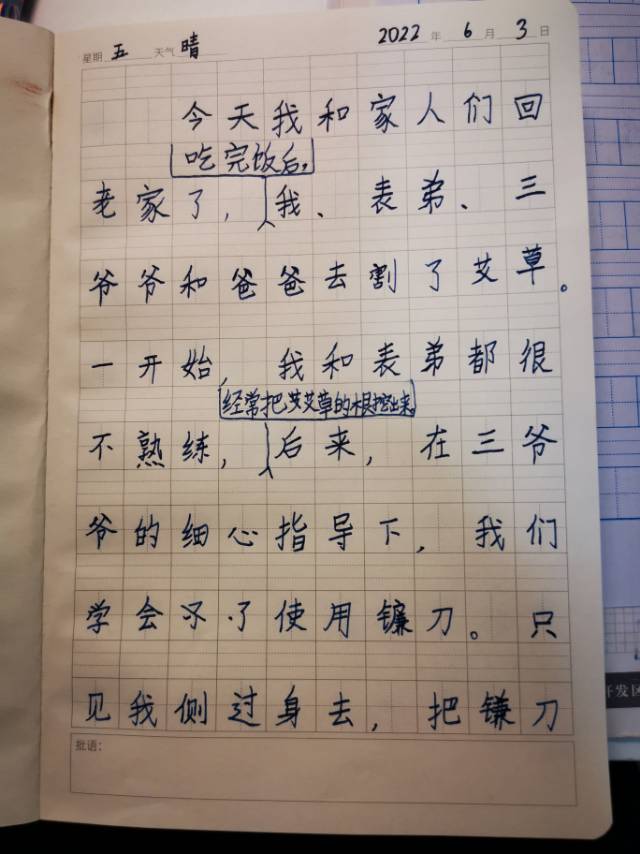 星期 五 天气 晴 2022 年 6 月 3 日
今天我和家人们回
吃完饭后,
老家了，我、表弟、三
爷爷和爸爸去割了艾草。
一开始，我和表弟都很
经常把艾艾草的根挖出来。
不熟练，后来，在三爷
爷的细心指导下，我们
学会不了使用镰刀。只
见我侧过身去，把镰刀
批语：
开发区